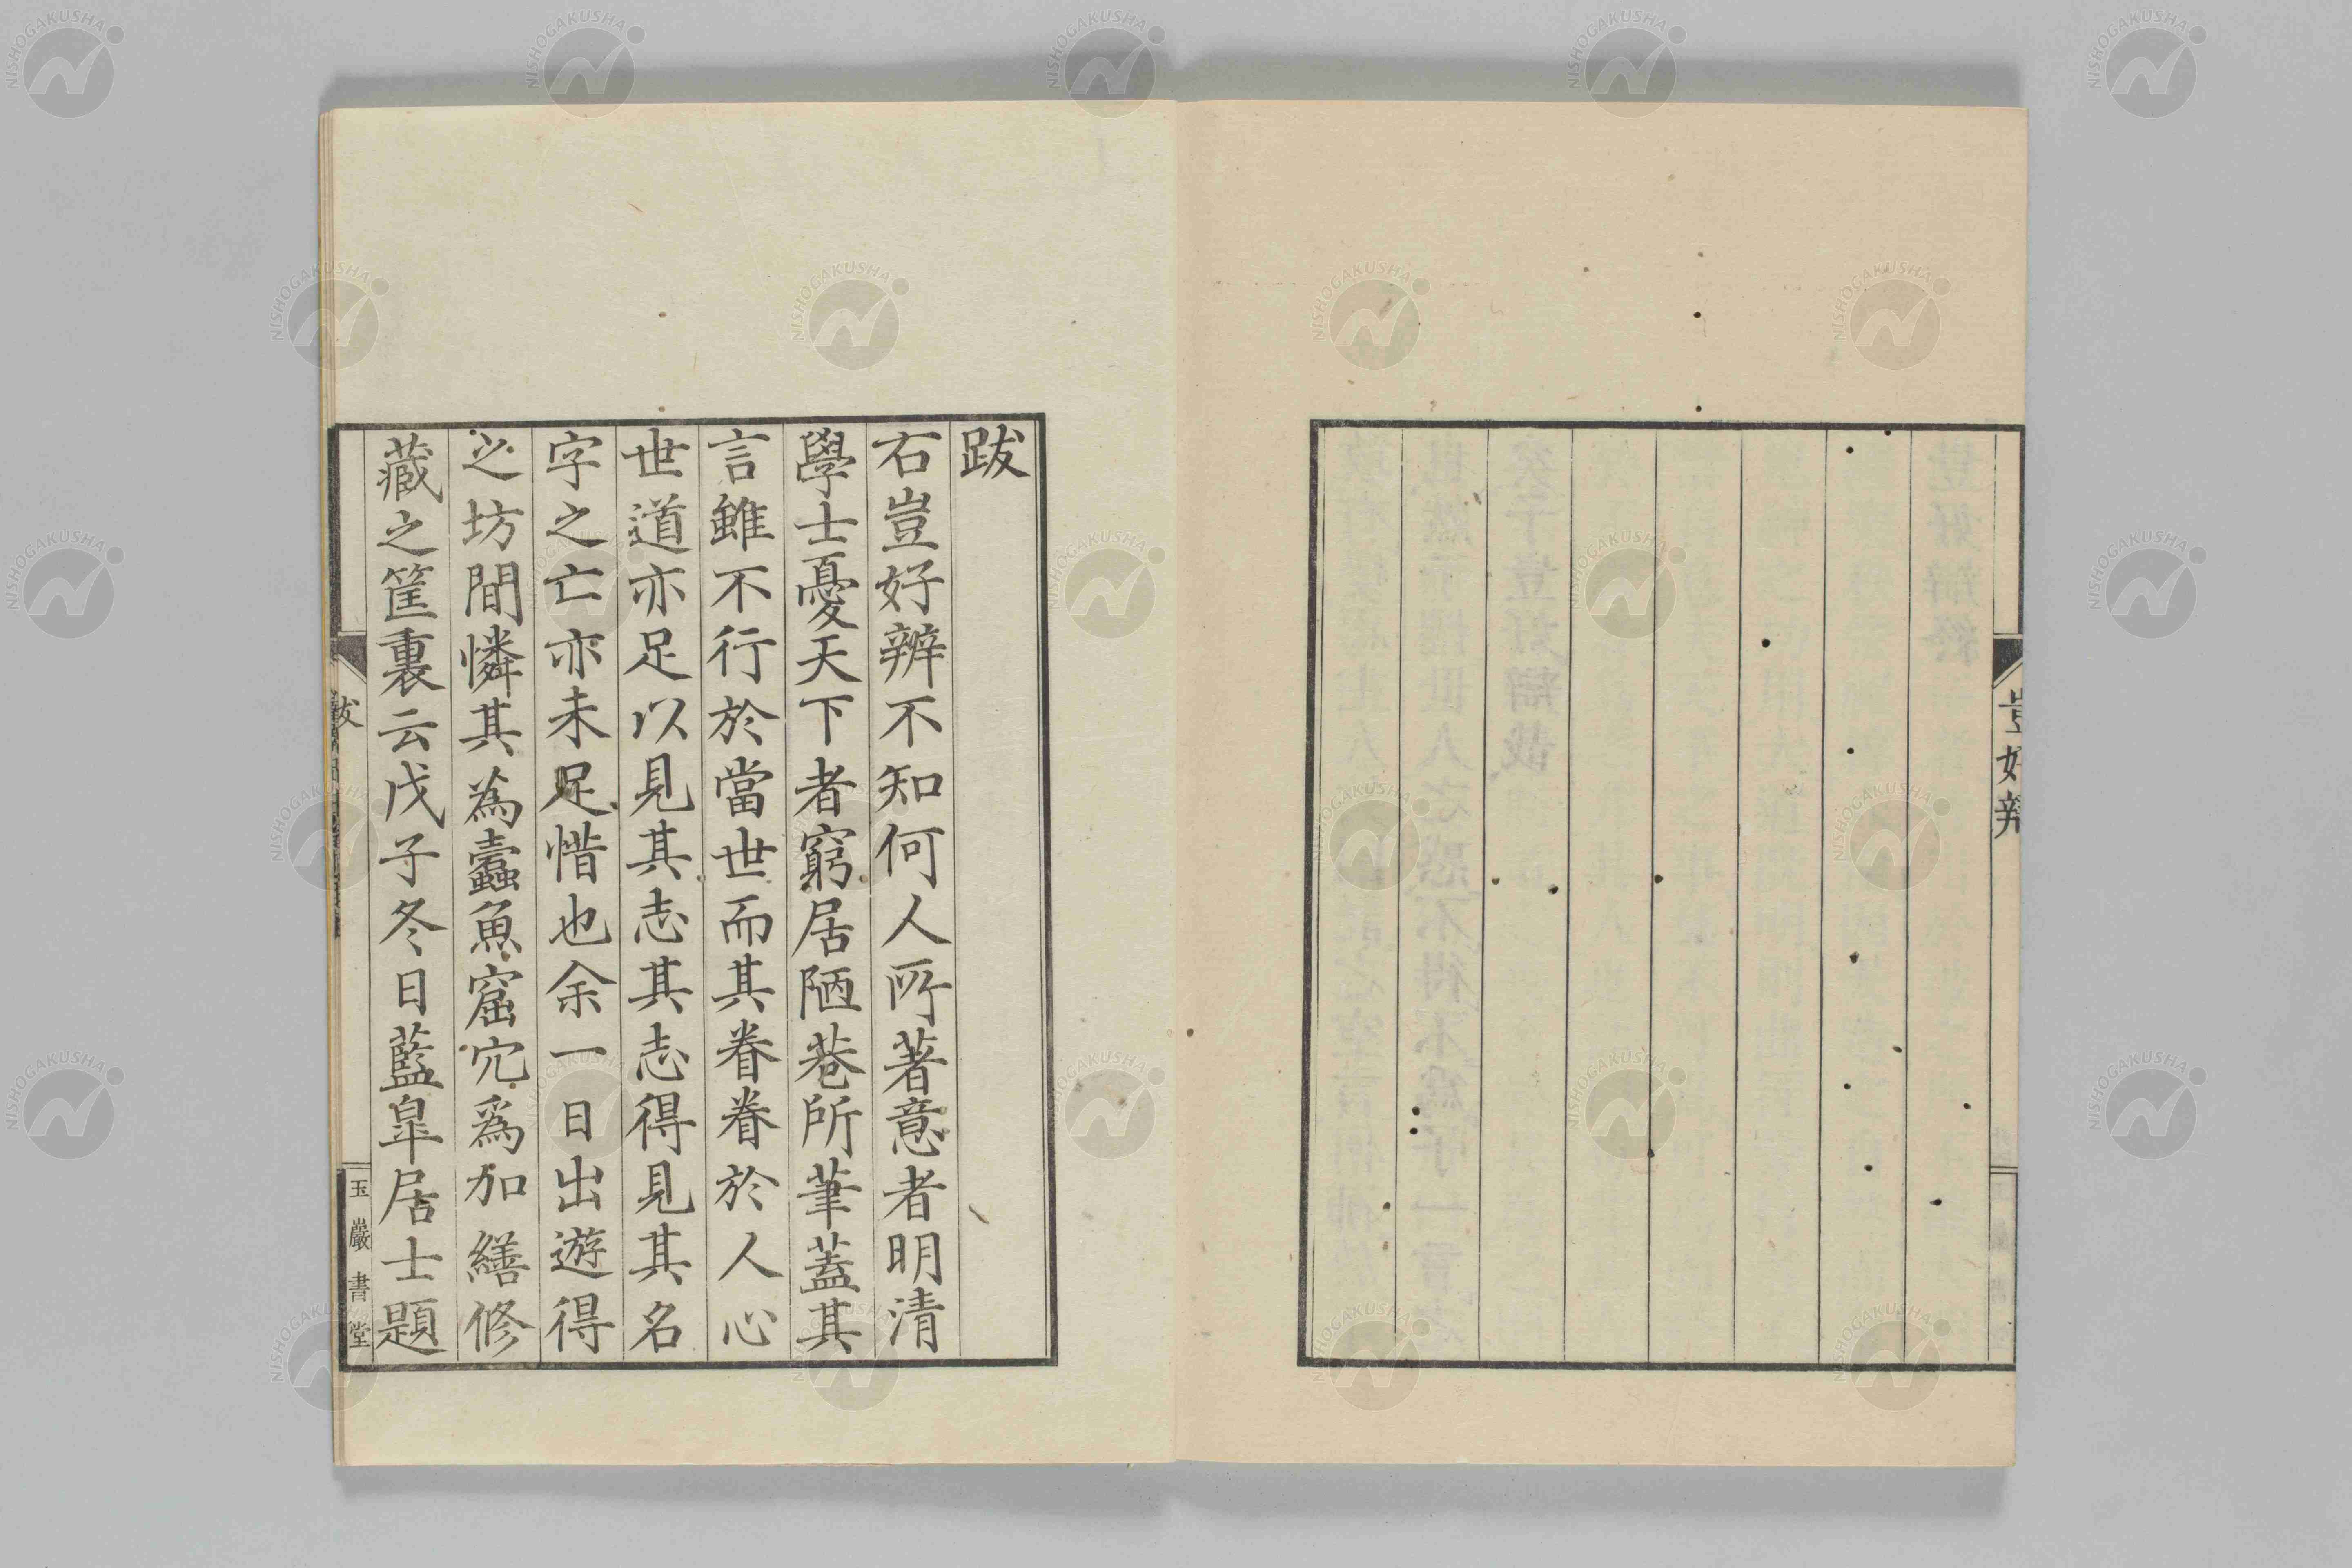 豈好辨
跋
右豈好辨不知何人所著意者明清
學士憂天下者窮居陋巷所筆蓋其
言雖不行於當世而其眷眷於人心
世道亦足以見其志其志得見其名
字之亡亦未足惜也余一日出遊得
之坊間憐其為蠹魚窟穴爲加繕修
藏之筐裏云戊子冬日藍皐居士題
跋
玉巖書堂
NISHOGAKUSHA